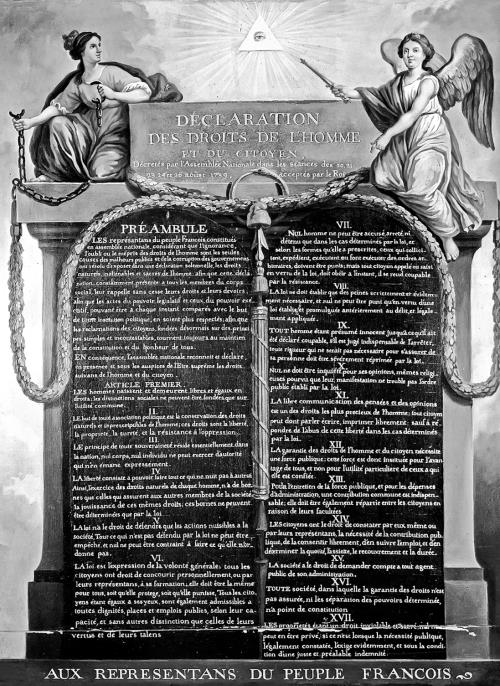 DÉCLARATION
DES DROITS DE L'HOMME
ET DU CITOYEN,
Décrétés par l'Assemblée Nationale dans les séances des 20, 21
23, 24 et 26 août 1789, acceptés par le Roi
PRÉAMBULE
LES représentans du peuple François constitués
en assemblée nationale, considérant que l'ignorance,
l'oubli ou le mépris des droits de l'homme sont les seules
causes des malheurs publics et de la corruption des gouvernemens,
ont résolu d'exposer dans une déclaration solemnelle, les droits
naturels, inaliénables et sacrés de l'homme; afin que cette décla-
ration, constamment présente à tous les membres du corps
social, leur rappelle sans cesse leurs droits et leurs devoirs;
afin que les actes du pouvoir législatif et ceux du pouvoir exé-
cutif, pouvant être à chaque instant comparés avec le but
de toute institution politique, en soient plus respectés; afin que
les réclamations des citoyens, fondées désormais sur des princi-
pes simples et incontestables, tournent toujours au maintien
de la constitution et du bonheur de tous.
EN conséquence, l'assemblée nationale reconnoît et déclare,
en présence et sous les auspices de l'Être suprême les droits
suivans de l'homme et du citoyen.
ARTICLE PREMIER.
LES hommes naissent et demeurent libres et égaux en
droits; les distinctions sociales ne peuvent être fondées que sur
l'utilité commune.
II.
LE but de toute association politique est la conservation des droits
naturels et imprescriptibles de l'homme; ces droits sont la liberté,
la propriété, la sureté, et la résistance à l'oppression.
III.
LE principe de toute souveraineté réside essentiellement dans
la nation, nul corps, nul individu ne peut exercer d'autorité
qui n'en émane expressément.
LA liberté consiste à pouvoir faire tout ce qui ne nuit pas à autrui
Ainsi, l'exercice des droits naturels de chaque homme, n'a de bor-
nes que celles qui assurent aux autres membres de la société
la jouissance de ces mêmes droits; ces bornes ne peuvent
être déterminées que par la loi.
V.
LA loi n'a le droit de défendre que les actions nuisibles à la
société. Tout ce qui n'est pas défendu par la loi ne peut être
empêché, et nul ne peut être contraint à faire ce qu'elle n'or-
donne pas.
VI.
LA loi est l'expression de la volonté générale; tous les
citoyens ont droit de concourir personnellement, ou par
leurs représentans, à sa formation; elle doit être la même
pour tous, soit qu'elle protège, soit qu'elle punisse. Tous les
citoyens étant égaux à ses yeux, sont également admissibles à
toutes dignités, places et emplois publics, selon leur ca-
pacité, et sans autres distinction que celles de leurs
vertus et de leurs talens
VII.
NUL homme ne peut être accusé, arrêté ni
détenu que dans les cas déterminés par la loi, et
selon les formes qu'elle a prescrites, ceux qui sollici-
tent, expédient, exécutent ou font exécuter des ordres ar-
bitraires, doivent être punis; mais tout citoyen appelé ou saisi
en vertu de la loi, doit obéir à l'instant, il se rend coupable
par la résistance.
VIII.
LA loi ne doit établir que des peines strictement et évidem-
ment nécessaires, et nul ne peut être puni qu'en vertu d'une
loi établie et promulguée antérieurement au délit, et léga-
lement appliquée.
IX.
TOUT homme étant présumé innocent jusqu'à ce qu'il ait
été déclaré coupable, s'il est jugé indispensable de l'arrêter,
toute rigueur qui ne serait pas nécessaire pour s'assurer de
sa personne doit être sévèrement réprimée par la loi.
X.
NUL ne doit être inquiété pour ses opinions, mêmes reli-
gieuses pourvu que leur manifestation ne trouble pas l'ordre
public établi par la loi.
XI.
LA libre communication des pensées et des opinions
est un des droits les plus précieux de l'homme; tout citoyen
peut donc parler écrire, imprimer librement: sauf à ré-
pondre de l'abus de cette liberté dans les cas déterminés
par la loi.
XII.
LA garantie des droits de l'homme et du citoyen nécessite
une force publique: cette force est donc instituée pour l'avan-
tage de tous, et non pour l'utilité particulière de ceux à qui
elle est confiée.
XIII.
POUR l'entretien de la force publique, et pour les dépenses
d'administration, une contribution commune est indispen-
sable; elle doit être également répartie entre les citoyens en
raison de leurs facultées
XIV.
LES citoyens ont le droit de constater par eux même ou
par leurs représentans, la nécessité de la contribution pub-
lique, de la consentir librement, d'en suivre l'emploi, et d'en
déterminer la quotité, l'assiette, le recouvrement et la durée.
XV.
LA société a le droit de demander compte à tout agent
public de son administration.
XVI.
TOUTE société, dans laquelle la garantie des droits n'est
pas assurée, ni les séparation des pouvoirs déterminée,
n'a point de constitution
XVII.
LES propriétés étant un droit inviolable et sacré, nul ne
peut en être privé, si ce n'est lorsque la nécessité publique,
légalement constatée, l'exige évidemment, et sous la con-
dition d'une juste et préalable indemnité
AUX REPRESENTANS DU PEUPLE FRANCOIS